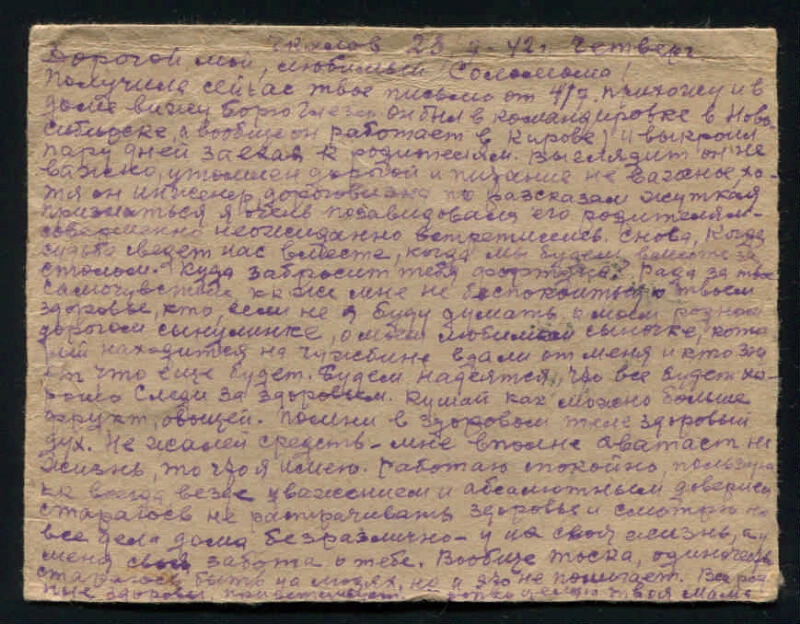 Чкалов 23 42 г. Четверг
Дорогой мой, любимый Соломоша!
Получила сейчас твое письмо от 4/7. прихожу и в
доме вижу Борю он был в командировке в Ново-
сибирске, а вообще он работает в Кирове и выкроил
пару дней заехал к родителям. Выглядит он не
важно, утомлен дорогой и питание не важное, хо-
тя он инженер, дороговизна по разсказам жуткая
признаться я очень позавидовала его родителям-
совершенно неожиданно встретились. Снова, когда
судьба сведет нас вместе, когда мы будем вместе за
столом. Куда забросит тебя фортуна? Рада за твое
самочувствие, как же мне не беспокоиться о твоем
здоровье, кто, если не я буду думать о моем родном
дорогом сынулинке, о моем любимом сыночке, кото
рый находится на чужбине вдали от меня и кто зна
ет что еще будет. Будем надеятся, что все будет хо-
рошо Следи за здоровьем. Кушай как можно больше
фрукт, овощей. Помни в здоровом теле здоровый
дух. Не жалей средств- мне вполне хватает на
жизнь, то что я имею. Работаю спокойно, пользуюсь
как всегда везде уважением и абсалютным доверием
стараюсь не растрачивать здоровье и смотрю на
все дела дома безразлично- у них своя жизнь, а у
меня своя забота о тебе. Вообще тоска, одиночество
стараюсь быть на людях, но и это не помогает. Все род
ные здоровы, приветствуют. целую твоя мама